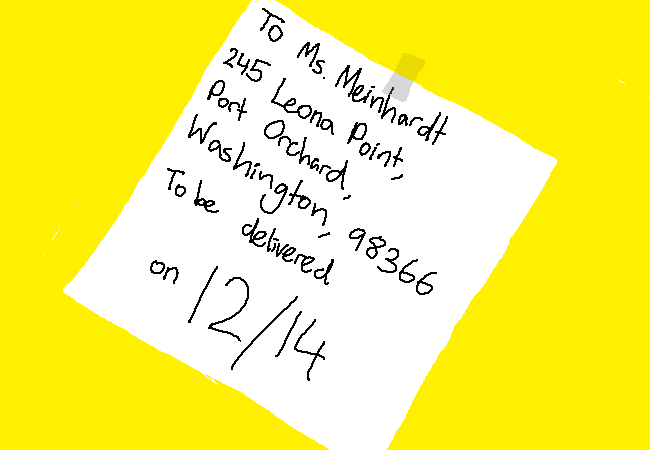 To Ms. Meinhardt
245 Leona Point,
Port Orchard,
Washington, 98366
To be delivered
on 12/14